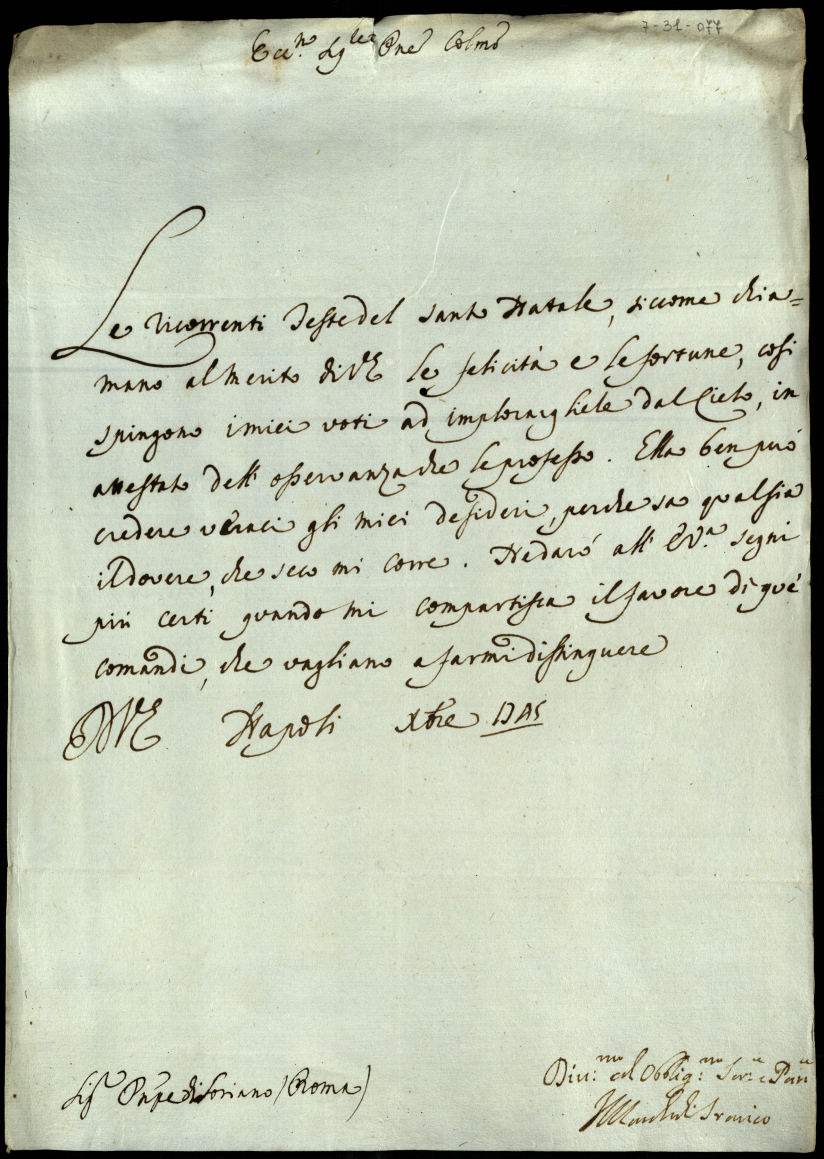 7-31-077
Ecc.mo Sig.re Pne Colmo
Le ricorrenti Feste del Santo Natale, siccome chia=
mano al Merito di VE le felicità e le fortune, così
spingono i miei voti ad implorargliele dal Cielo, in
attestato dell' osservanza che le professo. Ella ben può
credere veraci gli miei desideri, perche sa qual sia
il dovere, che seco mi corre. Ne darò all' EV.a segni
più certi quando mi compartisca il favore di què
comandi, che vagliano a farmi distinguere
DVE Napoli Xbre 1745
Sig.r Pnpe di Soriano (Roma)
Div.mo ed Obblig.mo Ser.e